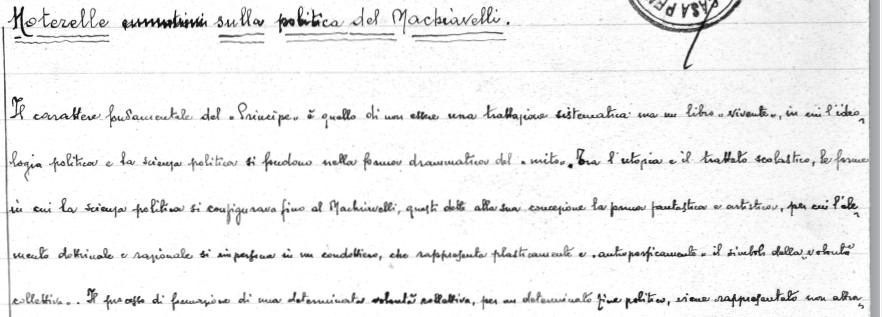 Noterelle sulla politica del Machiavelli.
CASA PE
Il carattere fondamentale del «Principe» è quello di non essere una trattazione sistematica ma un libro «vivente», in cui l'ideo=
logia politica e la scienza politica si fondono nella forma drammatica del «mito». Tra l'utopia e il trattato scolastico, le forme
in cui la scienza politica si configurava fino al Machiavelli, questi dette alla sua concezione la forma fantastica e artistica, per cui l'ele=
mento dottrinale e razionale si impersona in un condottiero, che rappresenta plasticamente e «antropoficamente» il simbolo della «volontà
collettiva». Il processo di formazione di una determinata volontà collettiva, per un determinato fine politico, viene rappresentato non attra=